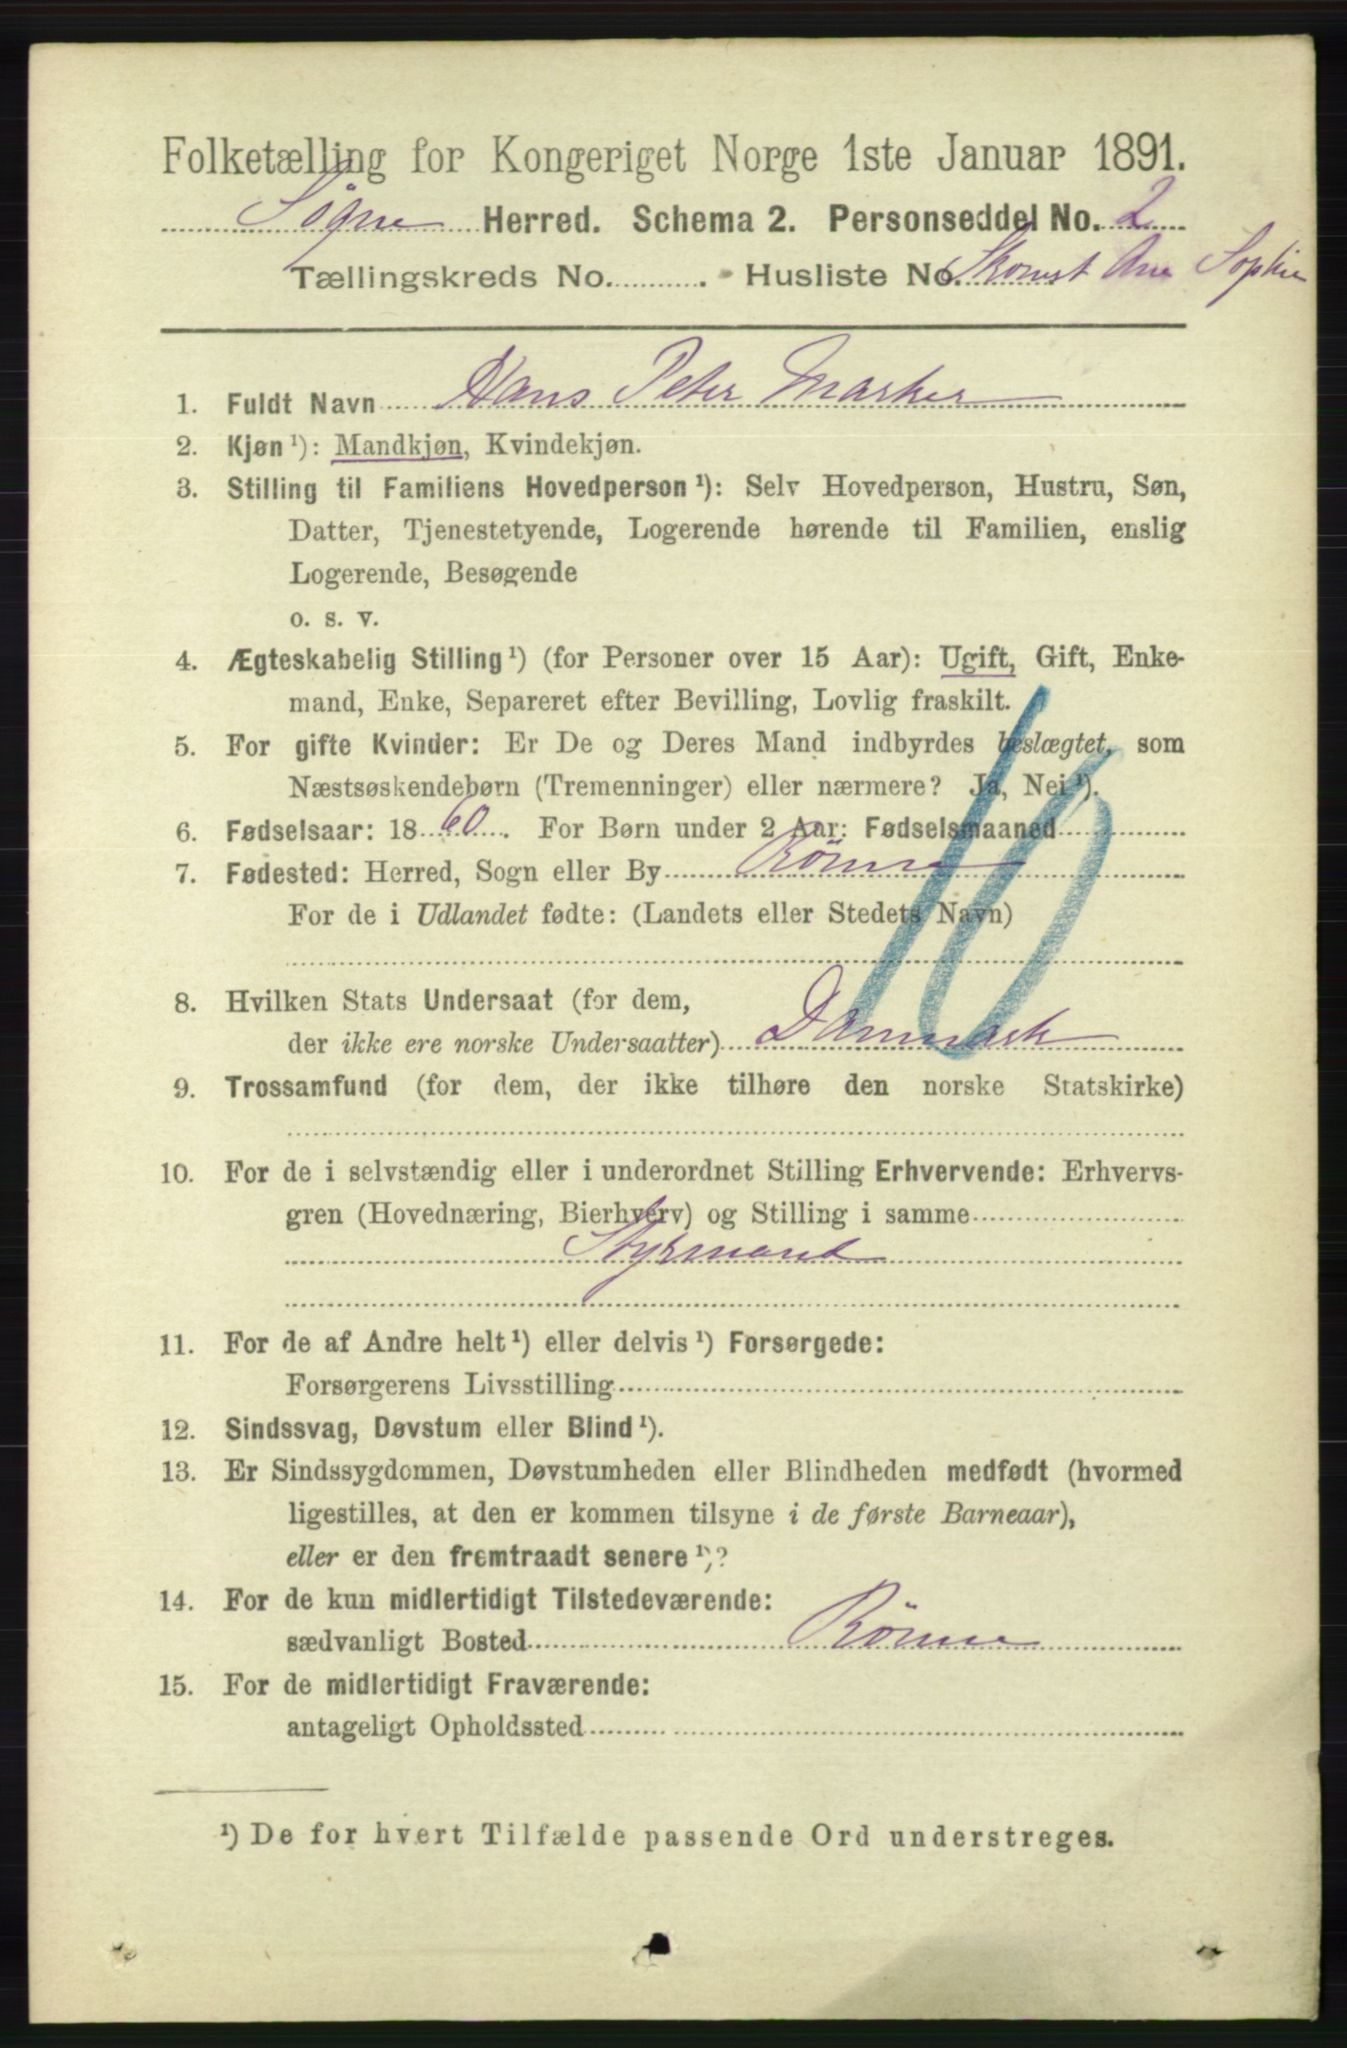 Folketælling for Kongeriget Norge 1ste Januar 1891.
Søgne Herred. Schema 2. Personseddel No. 2
Tællingskreds No. . Husliste No. Skonnt Ane Sophie
1. Fuldt Navn Hans Peter Marker
2. Kjøn¹): Mandkjøn, Kvindekjøn.
3. Stilling til Familiens Hovedperson¹): Selv Hovedperson, Hustru, Søn,
Datter, Tjenestetyende, Logerende hørende til Familien, enslig
Logerende, Besøgende
o. s. v.
4. Ægteskabelig Stilling¹) (for Personer over 15 Aar): Ugift, Gift, Enke-
mand, Enke, Separeret efter Bevilling, Lovlig fraskilt.
5. For gifte Kvinder: Er De og Deres Mand indbyrdes beslægtet, som
Næstsøskendebørn (Tremenninger) eller nærmere? Ja, Nei¹).
6. Fødselsaar: 1860. For Børn under 2 Aar: Fødselsmaaned
7. Fødested: Herred, Sogn eller By Rönne
For de i Udlandet fødte: (Landets eller Stedets Navn)
10
8. Hvilken Stats Undersaat (for dem,
der ikke ere norske Undersaatter) Danmark
9. Trossamfund (for dem, der ikke tilhøre den norske Statskirke)
10. For de i selvstændig eller i underordnet Stilling Erhvervende: Erhvervs-
gren (Hovednæring, Bierhverv) og Stilling i samme
Styrmand
11. For de af Andre helt¹) eller delvis¹) Forsørgede:
Forsørgerens Livsstilling
12. Sindssvag, Døvstum eller Blind¹).
13. Er Sindssygdommen, Døvstumheden eller Blindheden medfødt (hvormed
ligestilles, at den er kommen tilsyne i de første Barneaar),
eller er den fremtraadt senere¹)?
14. For de kun midlertidigt Tilstedeværende:
sædvanligt Bosted Rönne
15. For de midlertidigt Fraværende:
antageligt Opholdssted
¹) De for hvert Tilfælde passende Ord understreges.